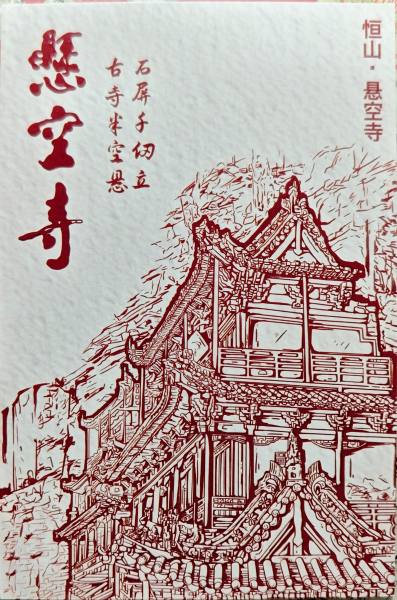 恒山·悬空寺
石屏千仞立
古寺半空悬
懸空寺